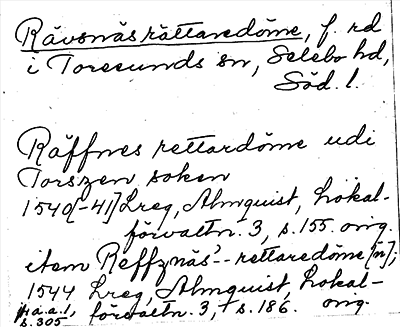 Rävsnäs rättaredöme, f. rd
i Toresunds sn, Selebo hd,
Söd. l.
Räffnes rettardöme udi
Torszen soken
1540[-41] Lreg, Almquist, Lokal-
förvaltn. 3, s. 155. orig.
item Reffznäs'-- rettaredöme[n];
1544 Lreg, Almquist, Lokal-
förvaltn. 3, s. 186. orig.
a.a.1,
s. 305